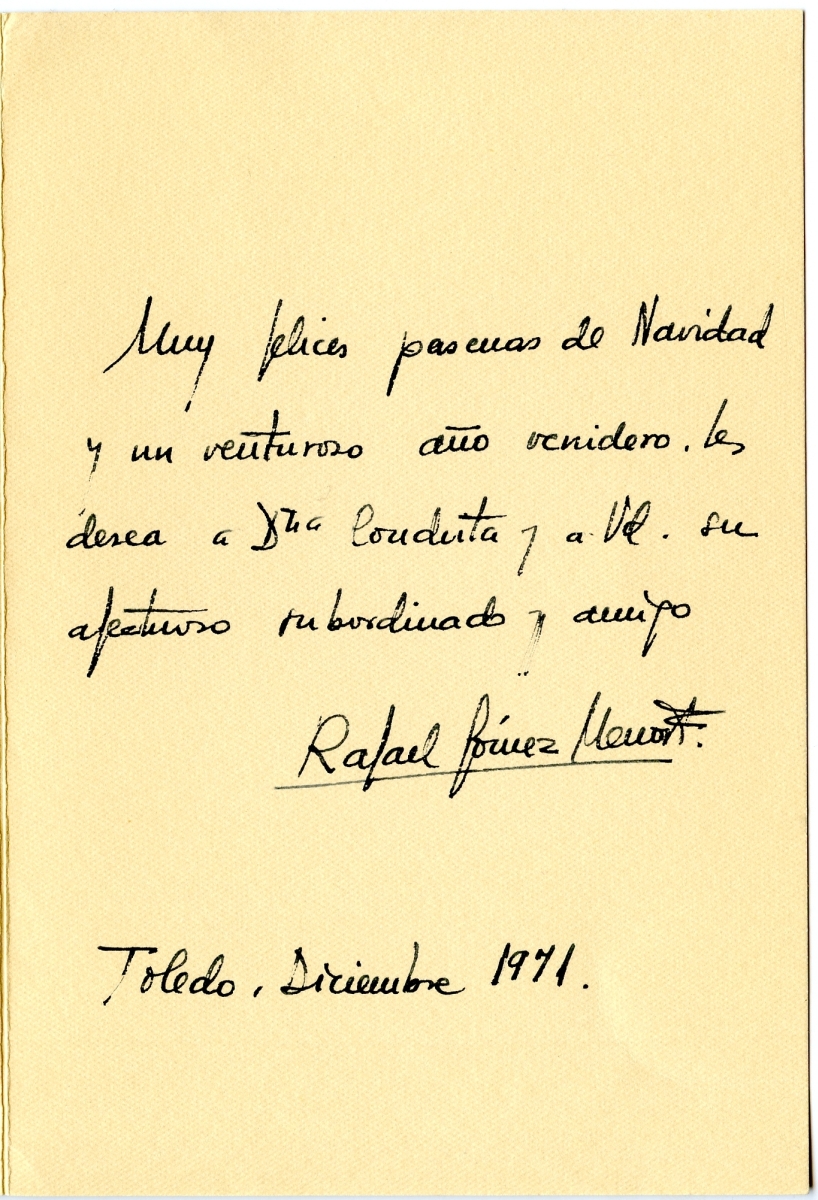 Muy felices pascuas de Navidad
y un venturoso año venidero. les
desea a Dña Conchita y a Vd. su
afectuoso subordinado y amigo
Rafael Gómez Menor
Toledo, Diciembre 1971.